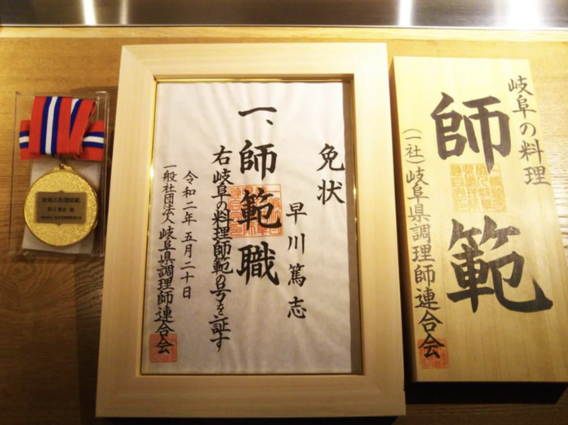 岐阜の料理
師範
(一社)岐阜県調理師連合会
免状
早川篤志
一、師範職
右岐阜の料理師範の号を証す
令和二年五月二十日
一般社団法人岐阜県調理師連合会